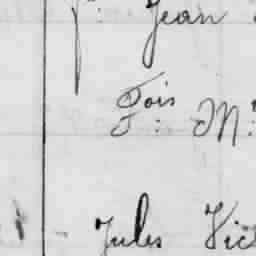 Jean
Fois M
Jules Vic